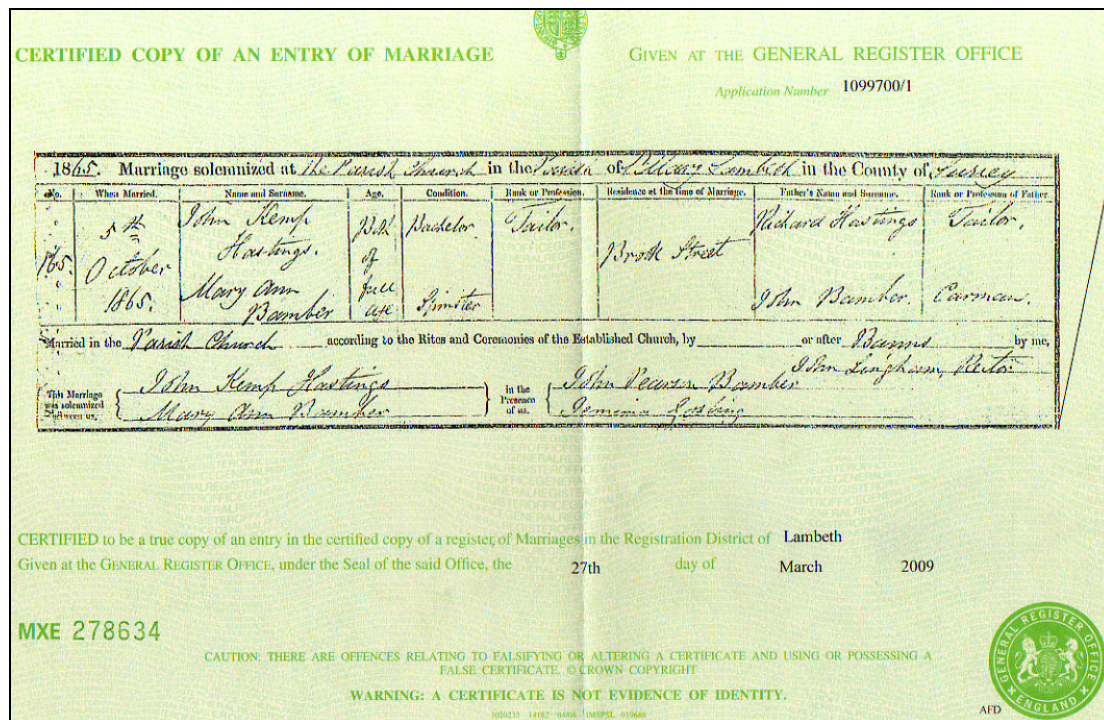 CERTIFIED COPY OF AN ENTRY OF MARRIAGE
GIVEN AT THE GENERAL REGISTER OFFICE
Application Number 1099700/1
1865. Marriage solemnized at the Parish Church in the Parish of St Mary Lambeth in the County of Surrey
No. When Married. Name and Surname. Age. Condition. Rank or Profession. Residence at the time of Marriage. Father's Name and Surname. Rank or Profession of Father.
5th John Kemp Both Bachelor. Tailor. Richard Hastings Tailor.
165. October Hastings. of Brook Street
1865. Mary Ann full Spinster John Bamber. Carman.
Bamber age
Married in the Parish Church according to the Rites and Ceremonies of the Established Church, by or after Banns by me,
John Lingham, Rector
This Marriage was solemnized between us, John Kemp Hastings In the Presence of us, John Pearson Bamber
Mary Ann Bamber Jemima
CERTIFIED to be a true copy of an entry in the certified copy of a register of Marriages in the Registration District of Lambeth
Given at the GENERAL REGISTER OFFICE, under the Seal of the said Office, the 27th day of March 2009
MXE 278634
CAUTION: THERE ARE OFFENCES RELATING TO FALSIFYING OR ALTERING A CERTIFICATE AND USING OR POSSESSING A
FALSE CERTIFICATE. © CROWN COPYRIGHT
WARNING: A CERTIFICATE IS NOT EVIDENCE OF IDENTITY.
GENERAL REGISTER OFFICE
ENGLAND
AFD